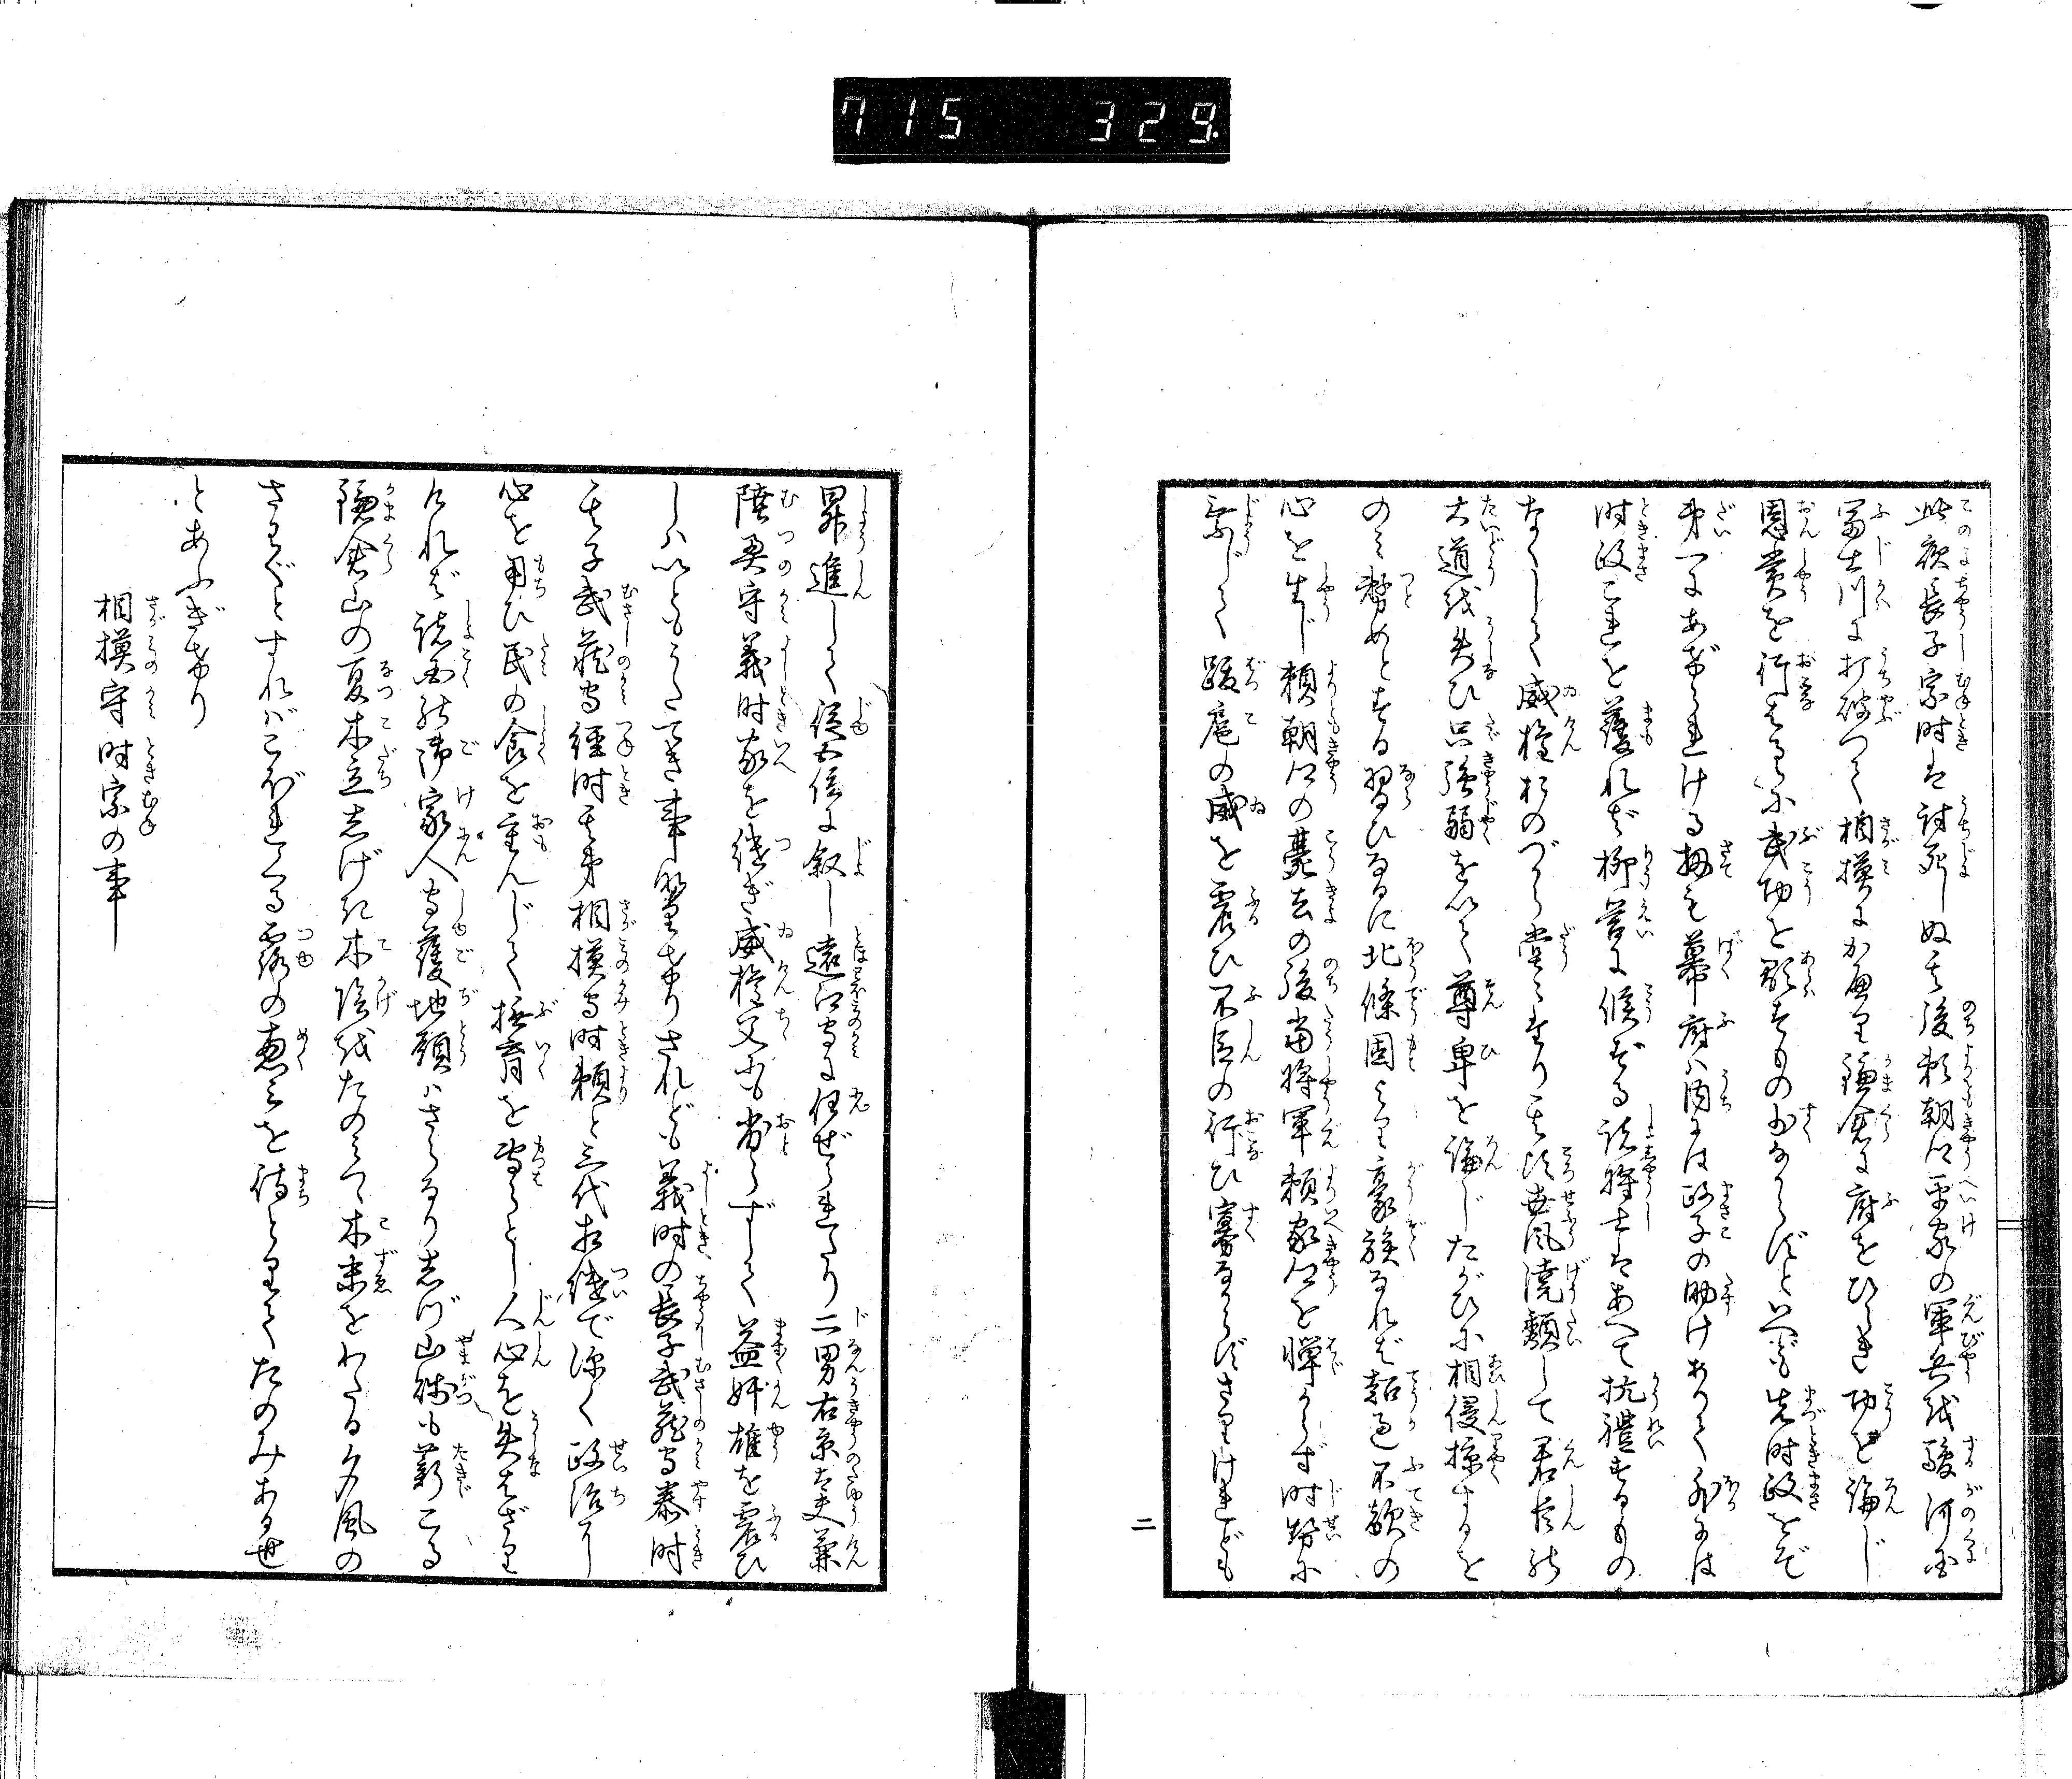 715 329.
此夜長子宗時は討死しぬ其後頼朝公平家の軍兵を駿河国
冨士川に打破つて相摸にかへり鎌倉に府をひらき功を論じ
恩賞を行はるゝに武功を顕すもの少からずといへども先時政をぞ
第一にあげられける扨も幕府の内には政子の助けありて外には
時政これを護れば柳営に候ずる諸将士はあへて抗礼するもの
なくして威権おのづら堂々たり其頃世風澆頽して君臣の
大道を失ひ只強弱を以て尊卑を論じたがひに相侵掠するを
のみ勢めとする習ひなるに北條固より豪族なれば超過不敵の
心を生じ頼朝公の薨去の後当将軍頼家公を憚からず時勢に
乗じて跋扈の威を震ひ不臣の行ひ寡なからずされけれども
二
昇進して従五位に叙し遠江守に任ぜられたり二男右京大夫兼
陸奥守義時家を継ぎ威権父にも劣らずして益奸雄を震ひ
しはいともうたてき事なりされども義時の長子武蔵守泰時
其子武蔵守経時其弟相摸守時頼と三代相継で深く政治に
心を用ひ民の食を重んじて撫育を専らとし人心を失はざり
ければ諸国の御家人守護地頭はさらなり志づ山賤も薪こる
鎌倉山の夏木立志げき木陰をたのみつゝ木末をわたる夕風の
さはぐとすればこぼれくる露の恵みを待とりてたのみある世
とあふぎけり
相摸守時宗の事